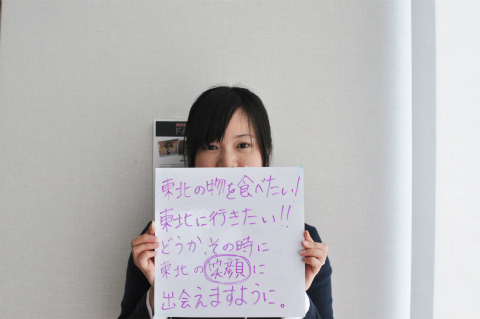 東北の物を食べたい!
東北に行きたい!!
どうか、その時に
東北の笑顔に
出会えますように。